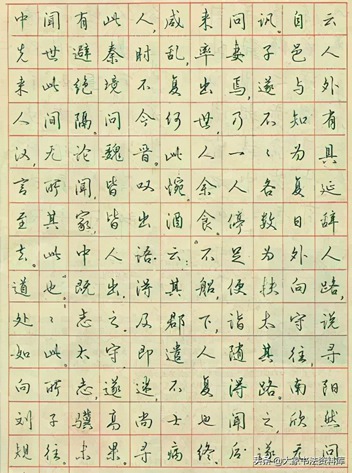 中闻有此人,咸来问讯。自云
先世避秦时乱,率妻子邑人
来此绝境不复出焉,遂与外
人间隔。问今何世,乃不知有
汉,无论魏晋。此人一〻为具
言所闻,皆叹惋。余人各复延
至其家,皆出酒食。停数日辞
去。此中人语云:“不足为外人
道也。”既出,得其船,便扶向路,
处〻志之。及郡下,诣太守说
如此。太守即遣人随其往,寻
向所志,遂迷不复得路。南阳
刘子骥高尚士也闻之,欣然
规往。未果寻病终。后遂无问
头条 @大家书法资料库